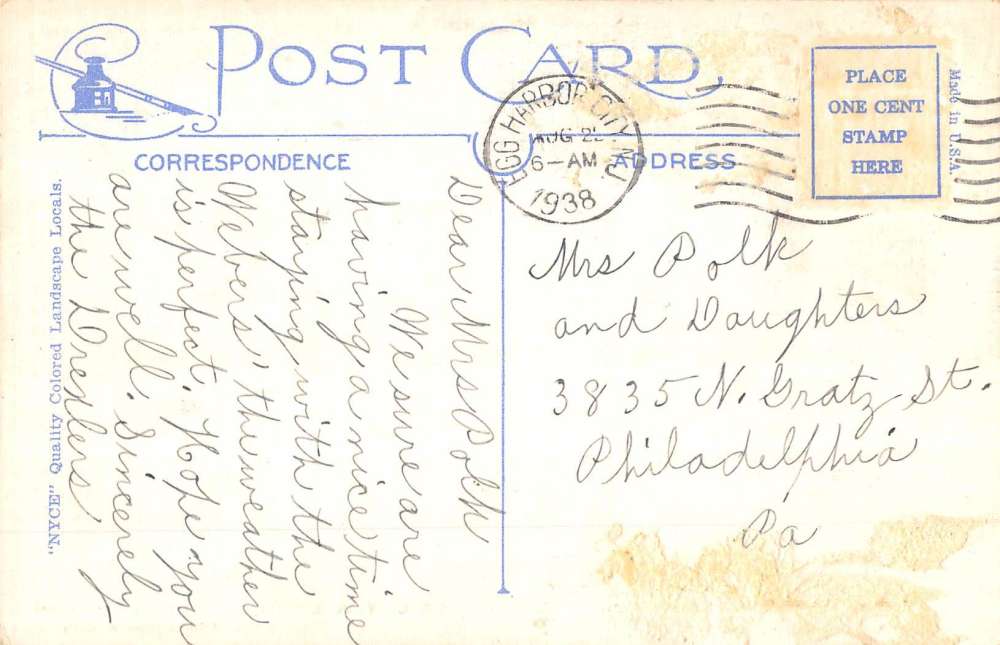 POST CARD.
CORRESPONDENCE
ADDRESS
PLACE
ONE CENT
STAMP
HERE
Made in U.S.A.
EGG HARBOR CITY, N.J.
AUG
6-AM
1938
"NYCE" Quality Colored Landscape Locals.
Dear Mrs Polk
We sure are
having a nice time
staying with the
Webers' the weather
is perfect. Hope you
are well. Sincerely
the
Mrs Polk
and Daughters
3835 N. Gratz St.
Philadelphia
Pa